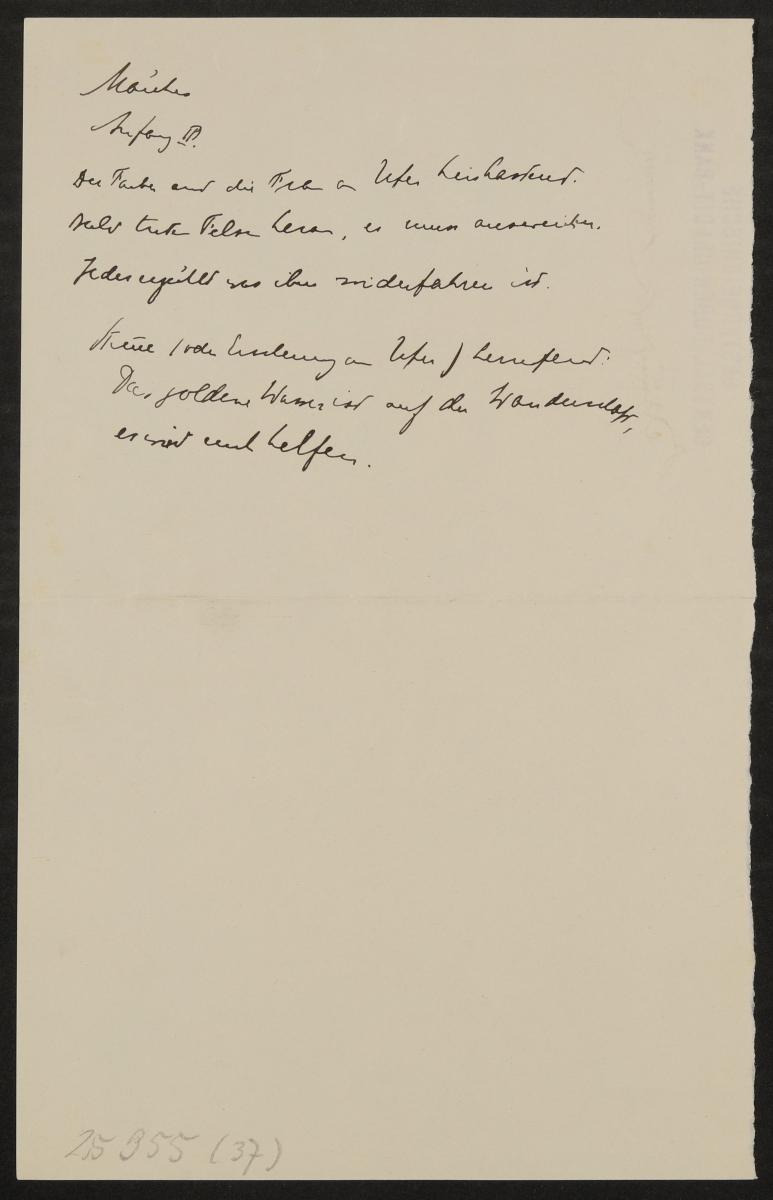 Märchen
Anfang III.
Der Färber und die Frau am Ufer hinhastend.
bald treten Felsen heran, er muss ausweichen.
Jeder erzählt was ihm widerfahren ist.
Stimme (oder Erscheinung am Ufer) herrufend:
Das goldene Wasser ist auf der Wanderschaft,
es wird euch helfen.
25 955 (37)